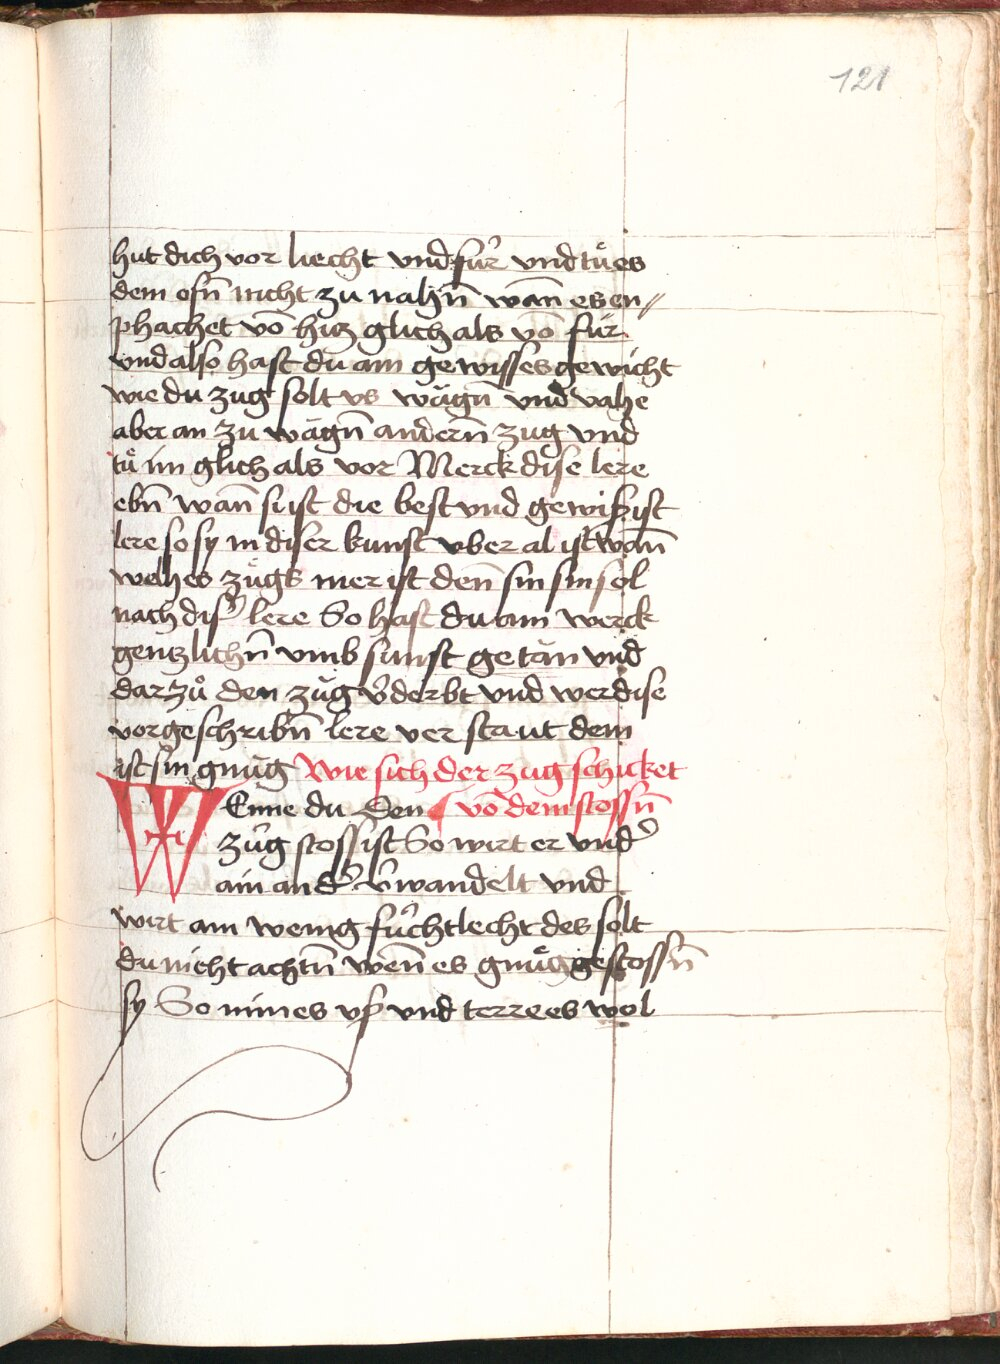 121
hut dich vor liecht vnd für vnd tuͤ es
dem ofn̄ nicht zu nahn̄ wan̄ es en//
phachet vō hitz glich als vō für
vnd also hast du ain gewisses gewicht
wie du zug solt vs wägn̄ vnd vahe
aber an zu wägn̄ andern̄ zug vnd
tuͤ im glich als vor Merck dise lere
ebn̄ wan̄ si ist die best vnd gewissist
lere so sy in diser kunst vber al ist wan̄
welhes zuͤgs mer ist den̄ sin sin sol
nach disr̄ lere So hast du ain werck
gentzlichn̄ vmb sunst getän vnd
darzů den zuͤg v̄derbt vnd wer dise
vorgeschribn̄ lere verstaut dem
ist sin gnüg Wie sich der zug schicket
Wenne du den vō dem stossn̄
zuͤg stossist So wirt er vnd̄
ain and̄ v̄wandelt vnd
wirt ain wenig fuͤchtlecht des solt
du nicht achtn̄ wen̄ es gnuͤg gestossn̄
sy So nim es vß vnd terre es wol